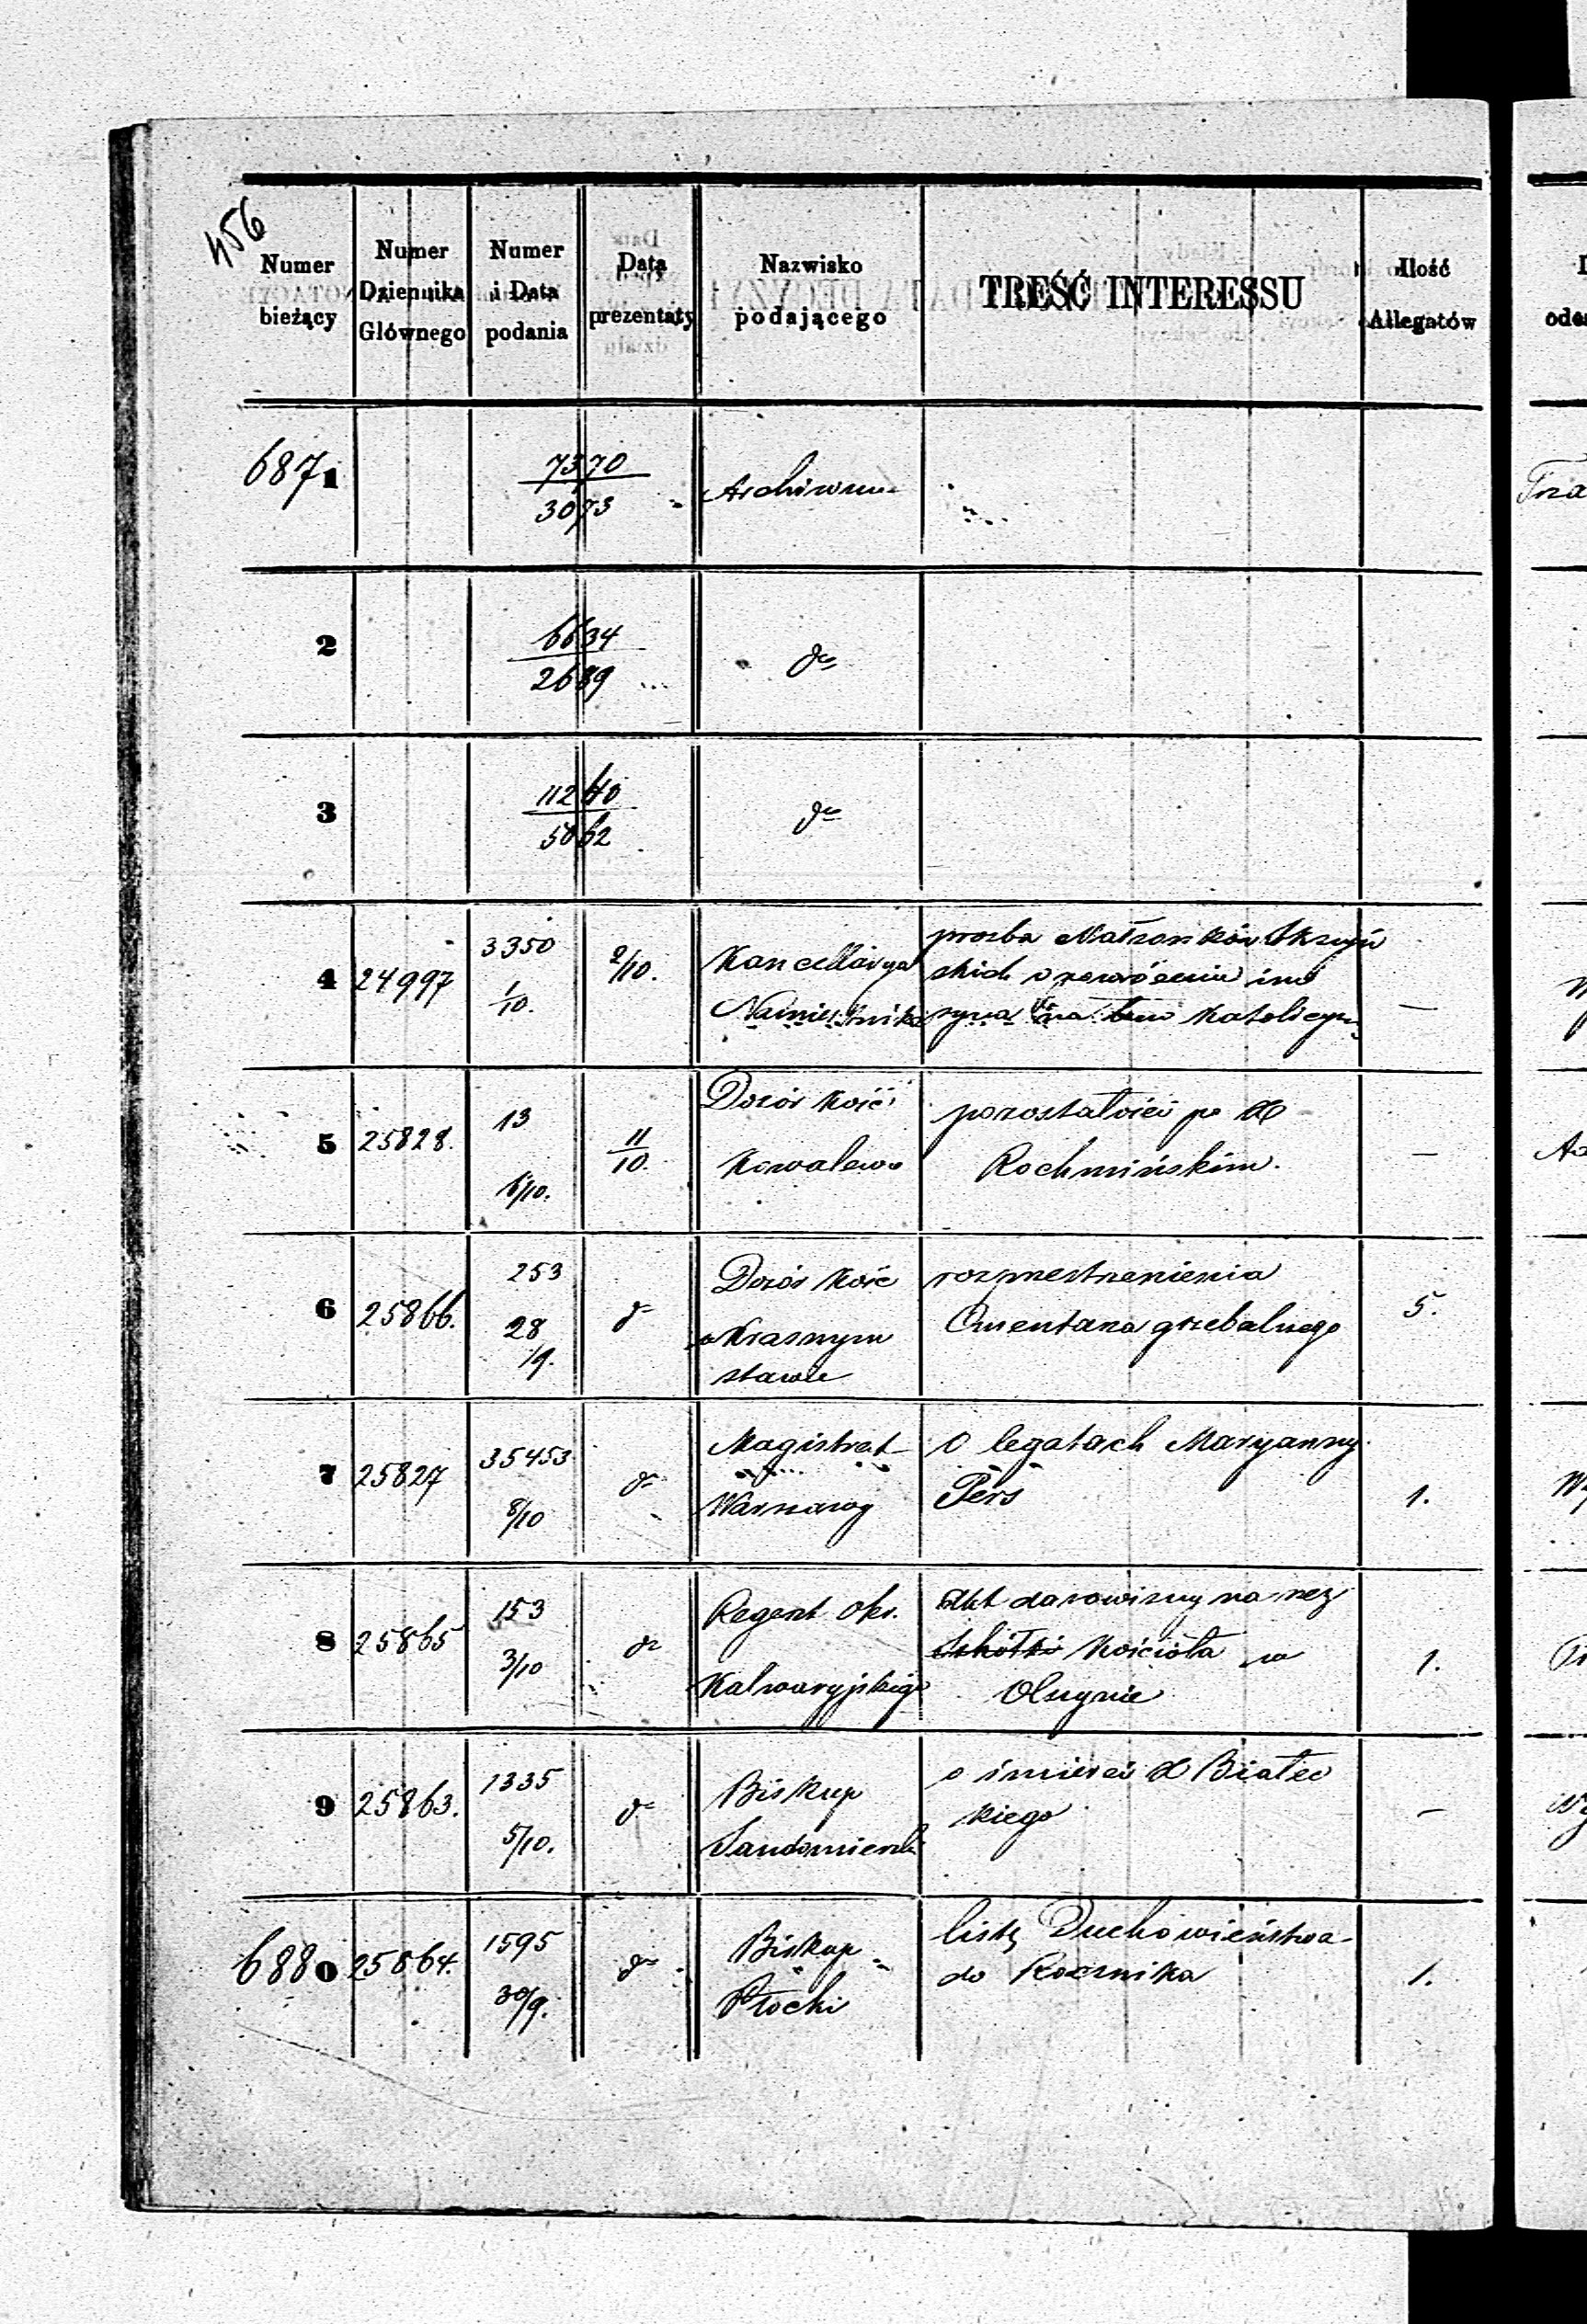 456
Numer bieżący
Numer Dziennika Głównego
Numer i Data podania
Data prezentaty
Nazwisko podającego
TREŚĆ INTERESSU
Ilość Allegatów
6871
7370
3073
Archiwum
2
6634
2689
do
3
11240
5062
do
4
24997
3350
1/10.
2/10.
Kancellarya
Namiestnika
prozba Małżonków Skrzyń
skich o
syna na Katolicyzm
—
5
25828.
13
6/10.
11/10.
Dozór Kość
Kowalewo
pozostałości po X
Rochmińskim.
—
6
25866.
253
28/9.
do
Dozór Kość
w Krasnym
stawie
rozprzestrzenienia
Cmentarza grzebalnego
5.
7
25827
35453
8/10
do
Magistrat
Warszawy
O legatach Maryanny
Pers
1.
8
25865
153
3/10
do
Regent Okr.
Kalwaryjskiego
Akt darowizny na rzez
Kościoła w
Olszynie
1.
9
25863.
1335
5/10.
do
Biskup
Sandomierski
o śmierci X Białec
kiego
—
6880
25864.
1595
30/9.
do
Biskup
Płocki
listę Duchowieństwa
do Rocznika
1.